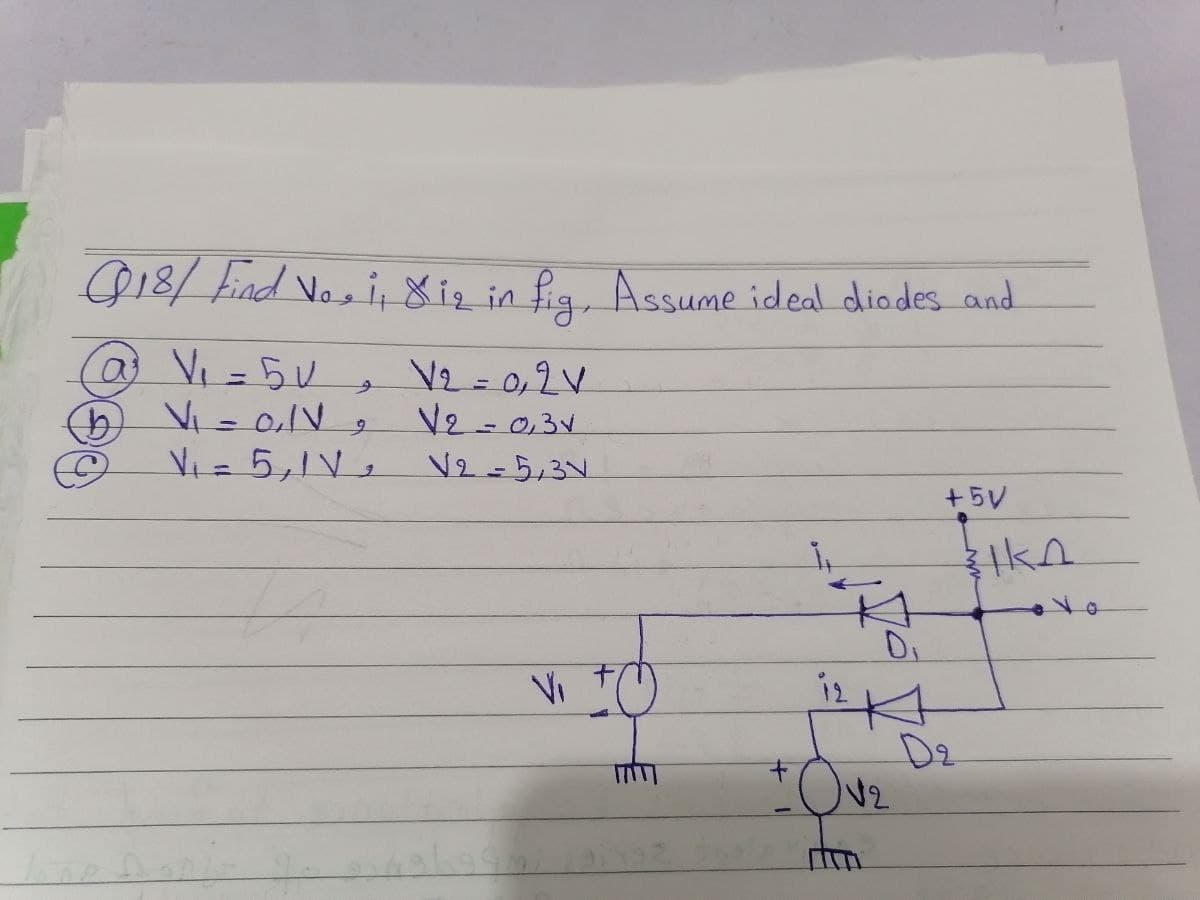 Q18/ Find Vo, i1 & i2 in fig, Assume ideal diodes and
(a) V1 = 5V , V2 = 0,2V
(b) V1 = 0,1V , V2 = 0,3V
(c) V1 = 5,1V , V2 = 5,3V
+5V
i1
1kΩ
Vo
D1
V1 + -
i2
D2
+ - V2